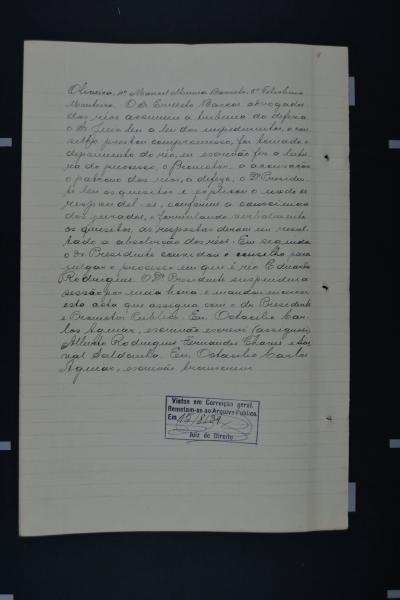 Oliveira, Manoel Moreira Barreto,
Monteiro. O Dr. Ernesto Barros advogado
dos réos assumem a tribuna da defesa
o Dr. Juiz leu a lei dos impedimentos, o con-
selho prestou compromisso, foi tomado o
depoimento do réo, eu escrivão fiz a leitu-
ra do processo, o Promotor, a accusação
o patrono dos réos, a defesa, o Dr. Presiden-
te leu os quesitos e explicou o modo de
respondel-os, conforme a consciencia
dos jurados, e formulando verbalmente
os quesitos, as respostas deram em resul-
tado a absolvição dos réos. Em seguida
o dr. Presidente convidou o conselho para
julgar o processo em que é réo Eduardo
Rodrigues. O Dr. Presidente suspendeu a
sessão por meia hora e mandou lavrar
esta acta que assigna com o dr. Presidente
e Promotor Publico. Eu, Octacilio Car-
los Aguiar, escrivão escrevi (assignados)
Alberto Rodrigues Fernandes Chaves e
Saldanha. Eu, Octacilio Carlos
Aguiar, escrivão transcrevi
Vistos em Correição geral.
Remetam-se ao Arquivo Publico.
Em
Juiz de Direito